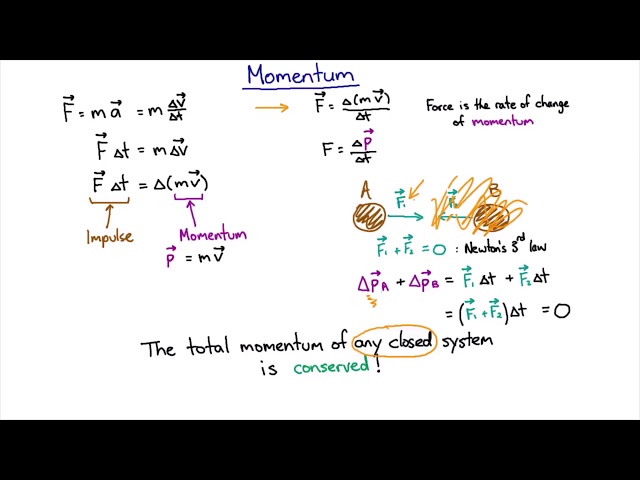 Momentum
F⃗ = m a⃗ = m Δv⃗/Δt
F⃗ Δt = mΔv⃗
F⃗ Δt = Δ(mv⃗)
Impulse Momentum
p⃗ = mv⃗
→ F⃗ = Δ(mv⃗)/Δt
F = Δp⃗/Δt
Force is the rate of change
of momentum
A B
F⃗₁
F⃗₁ + F⃗₂ = 0 : Newton's 3rd law
Δp⃗A + Δp⃗B = F⃗₁ Δt + F⃗₂Δt
= (F⃗₁ + F⃗₂)Δt = 0
The total momentum of any closed system
is conserved!